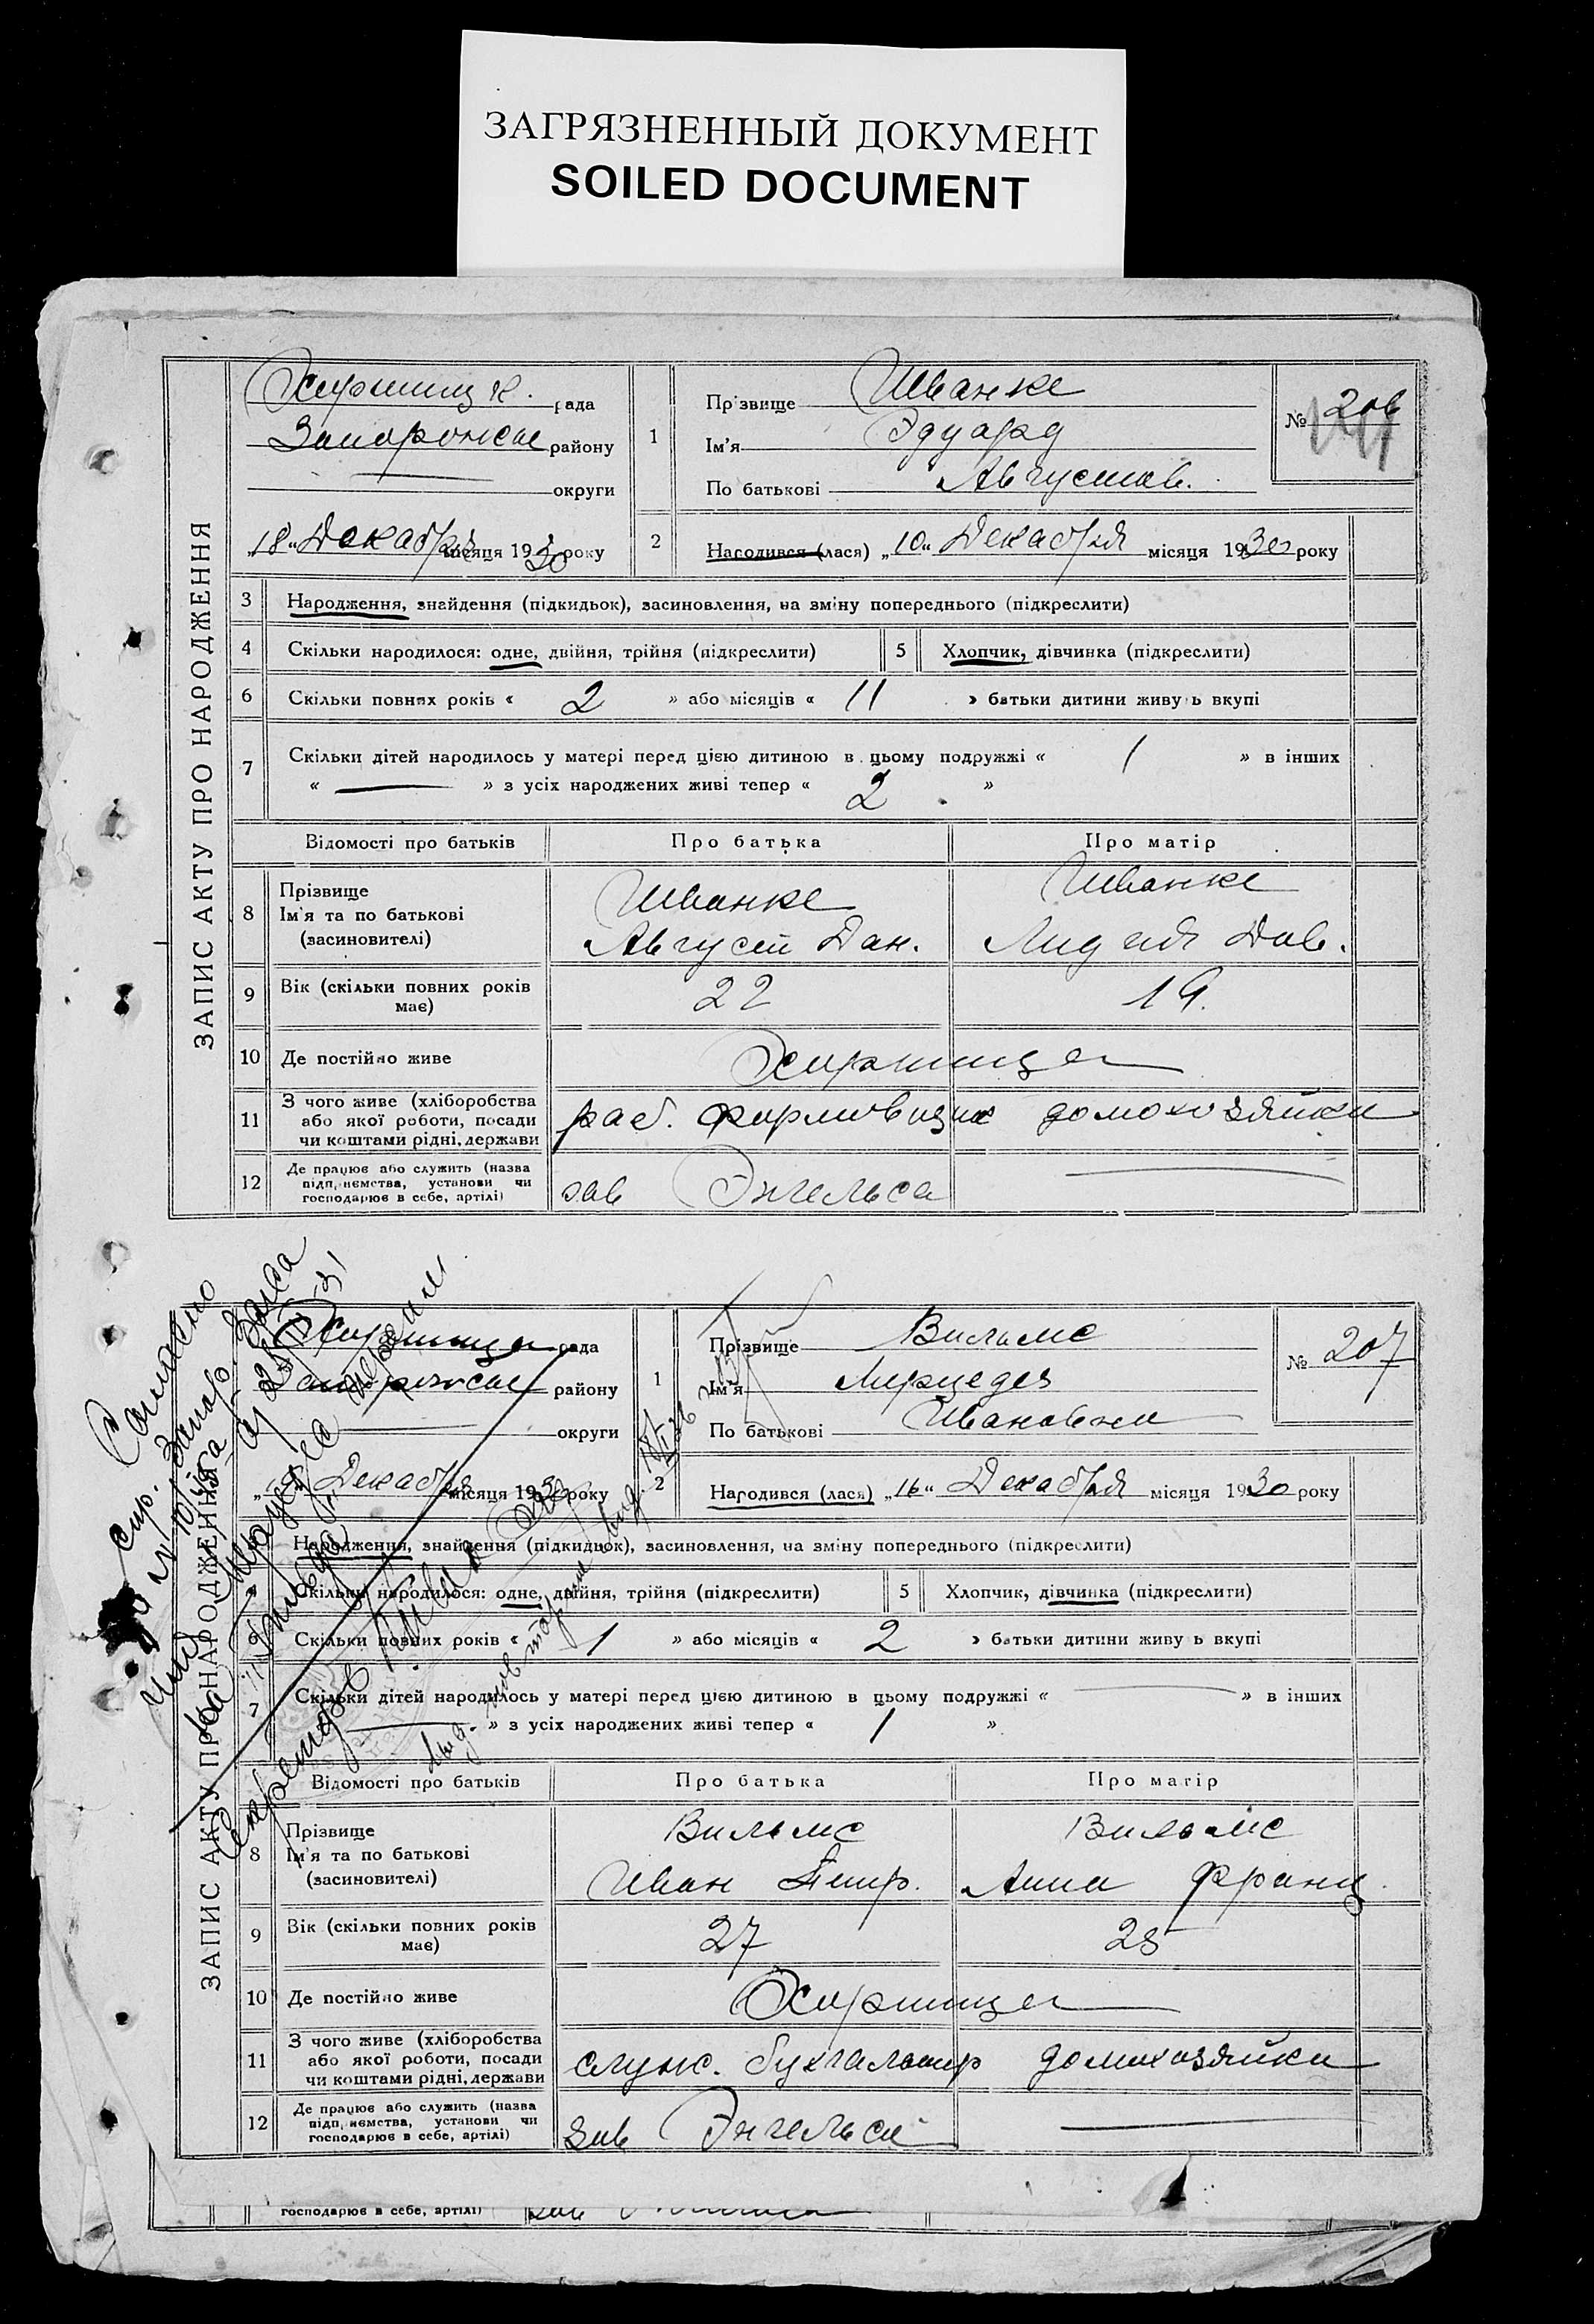 ЗАГРЯЗНЕННЫЙ ДОКУМЕНТ
SOILED DOCUMENT
ЗАПИС АКТУ ПРО НАРОДЖЕННЯ
Хортицк. рада
Запорожск району
округи
„18“ Декабря місяця 1930 року
1
Прізвище Иванке
Ім'я Эдуард
По батькові Августов.
№ 206
2
Народився (лася) „10“ Декабря місяця 1930 року
3 Народження, знайдення (підкидьок), засиновлення, на зміну попереднього (підкреслити)
4 Скільки народилося: одне, двійня, трійня (підкреслити)
5 Хлопчик, дівчинка (підкреслити)
6 Скільки повних років « 2 » або місяців « 11 » батьки дитини живуть вкупі
7 Скільки дітей народилось у матері перед цією дитиною в цьому подружжі « 1 » в інших
« — » з усіх народжених живі тепер « 2 »
Відомості про батьків Про батька Про матір
8 Прізвище
Ім'я та по батькові
(засиновителі)
Иванке Иванке
Август Дан. Лидия Дав.
9 Вік (скільки повних років має) 22 19.
10 Де постійно живе Хортица
11 З чого живе (хліборобства
або якої роботи, посади
чи коштами рідні, держави
раб. формовщик домохозяйка
12 Де працює або служить (назва
підприємства, установи чи
господарює в себе, артілі)
зав Энгельса —
ЗАПИС АКТУ ПРО НАРОДЖЕННЯ
Согласно
Хортица рада
Запорожск району
округи
Декабря місяця 1930 року
1
Прізвище Вильмс
Ім'я Мерцедез
По батькові Ивановна
№ 207
2
Народився (лася) „16“ Декабря місяця 1930 року
Народження, знайдення (підкидьок), засиновлення, на зміну попереднього (підкреслити)
4 Скільки народилося: одне, двійня, трійня (підкреслити)
5 Хлопчик, дівчинка (підкреслити)
6 Скільки повних років « 1 » або місяців « 2 » батьки дитини живуть вкупі
7 Скільки дітей народилось у матері перед цією дитиною в цьому подружжі « — » в інших
— » з усіх народжених живі тепер « 1 »
Відомості про батьків Про батька Про матір
8 Прізвище
Ім'я та по батькові
(засиновителі)
Вильмс Вильмс
Иван Петр. Анна Франц.
9 Вік (скільки повних років має) 27 25
10 Де постійно живе Хортица
11 З чого живе (хліборобства
або якої роботи, посади
чи коштами рідні, держави
служ. бухгалтер домохозяйка
12 Де працює або служить (назва
підприємства, установи чи
господарює в себе, артілі)
Зав Энгельса —
господарює в себе, артілі)